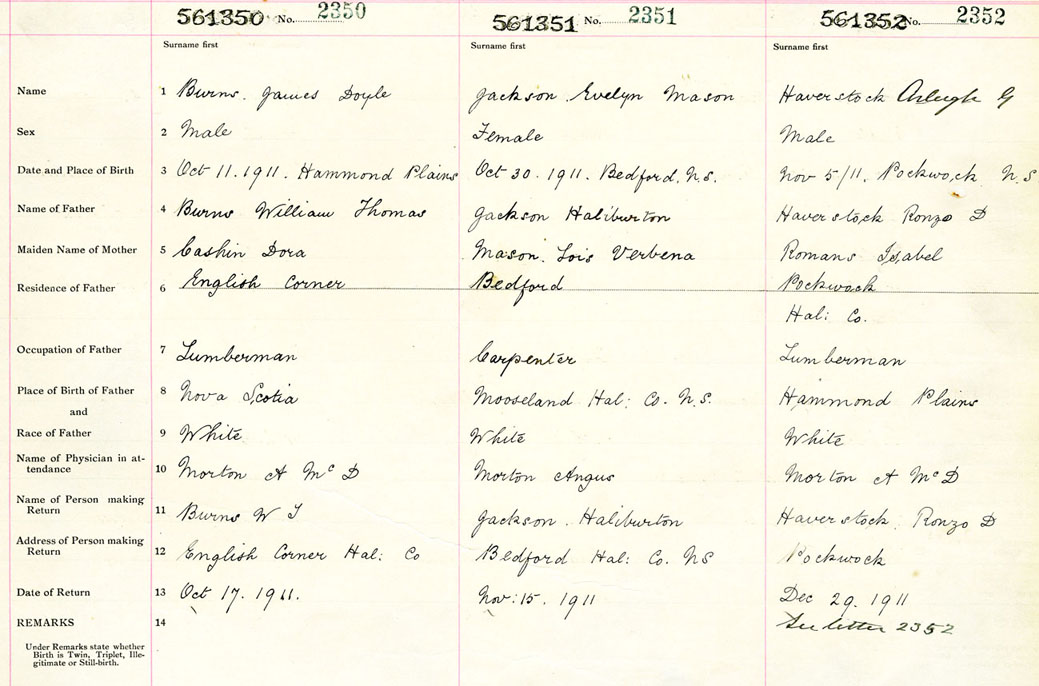 561350 No. 2350 561351 No. 2351 561352 No. 2352
Surname first Surname first Surname first
Name 1 Burns. James Doyle Jackson. Evelyn Mason Haverstock Arleigh G
Sex 2 Male Female Male
Date and Place of Birth 3 Oct 11. 1911. Hammond Plains Oct 30. 1911. Bedford. N.S. Nov 5/11. Pockwock N.S
Name of Father 4 Burns William Thomas Jackson Haliburton Haverstock Ronzo D
Maiden Name of Mother 5 Cashin Dora Mason. Lois Verbena Romans Isabel
Residence of Father 6 English Corner Bedford Pockwock
Hal: Co.
Occupation of Father 7 Lumberman Carpenter Lumberman
Place of Birth of Father 8 Nova Scotia Mooseland Hal: Co. N.S. Hammond Plains
and
Race of Father 9 White White White
Name of Physician in at-
tendance 10 Morton A McD Morton Angus Morton A McD
Name of Person making
Return 11 Burns W T Jackson. Haliburton Haverstock. Ronzo D
Address of Person making
Return 12 English Corner Hal: Co Bedford Hal: Co. NS Pockwock
Date of Return 13 Oct 17. 1911. Nov: 15. 1911 Dec 29. 1911
REMARKS 14 See letter 2352
Under Remarks state whether
Birth is Twin, Triplet, Ille-
gitimate or Still-birth.